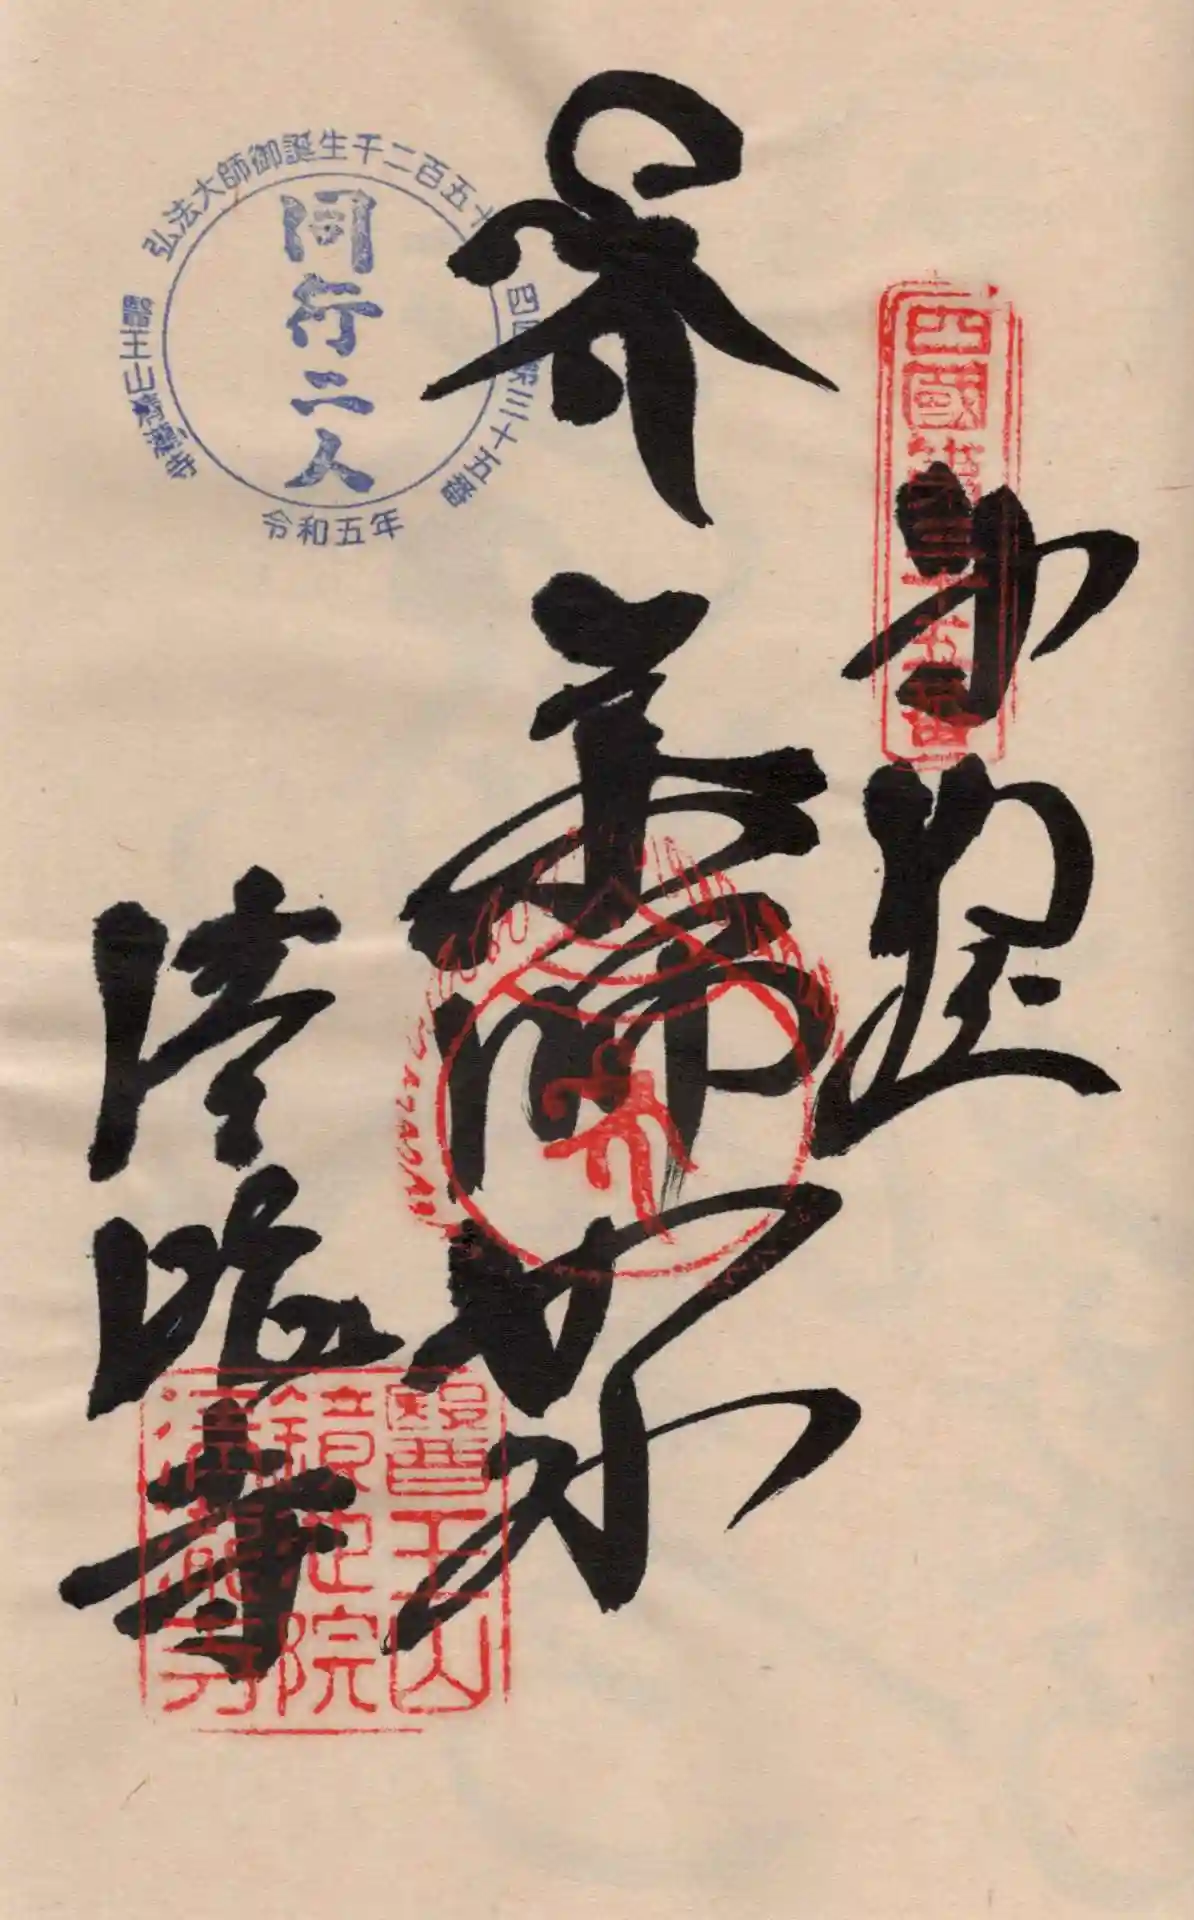 四國第三十五番
薬師如来
清瀧寺
弘法大師御誕生千二百五十
四国第三十五番
令和五年
醫王山清瀧寺
同行二人
醫王山
鏡池院
清瀧寺